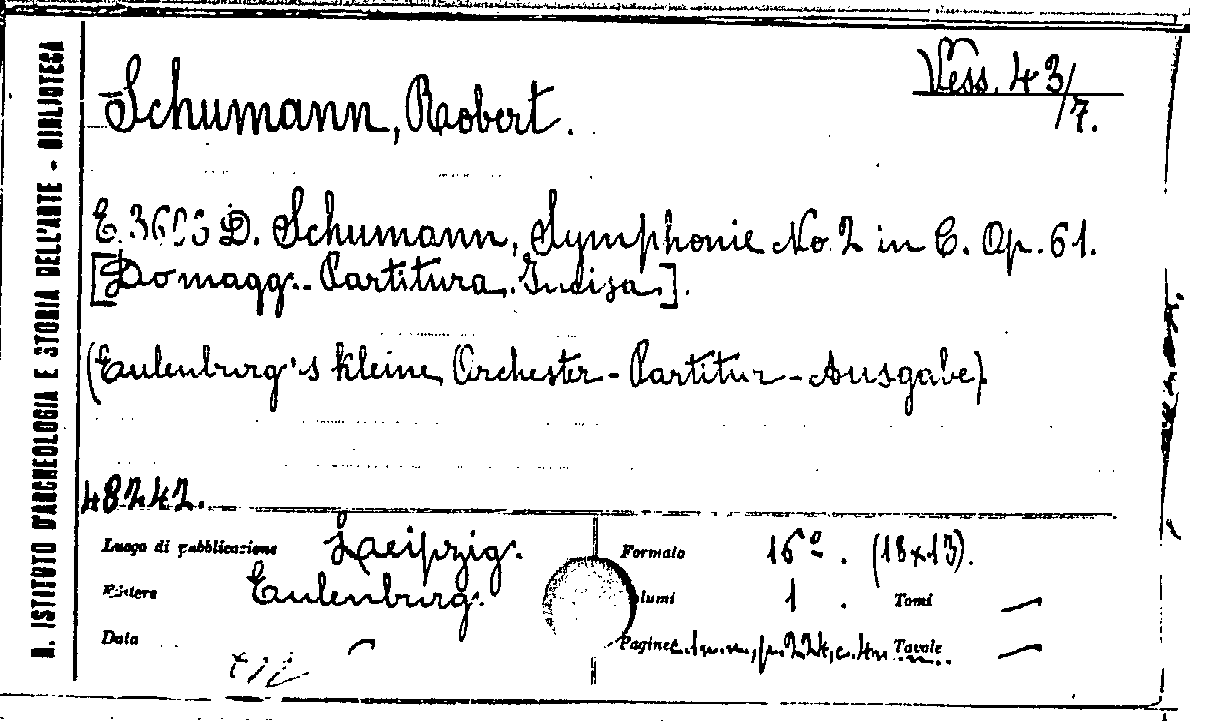 R. ISTITUTO D'ARCHEOLOGIA E STORIA DELL'ARTE - BIBLIOTECA
Vess. 43/7.
Schumann, Robert.
E. 3603 D. Schumann, Symphonie No 2 in C. Op. 61.
[Domagg. - Partitura. Incisa.].
(Eulenburg's kleine Orchester-Partitur-Ausgabe)
48242.
Luogo di pubblicazione Leipzig. Formato 16º. (18x13).
Editore Eulenburg. Volumi 1. Tomi —
Data — Pagine c. 1 n. n., p. 224, c. 4 n. n.. Tavole —